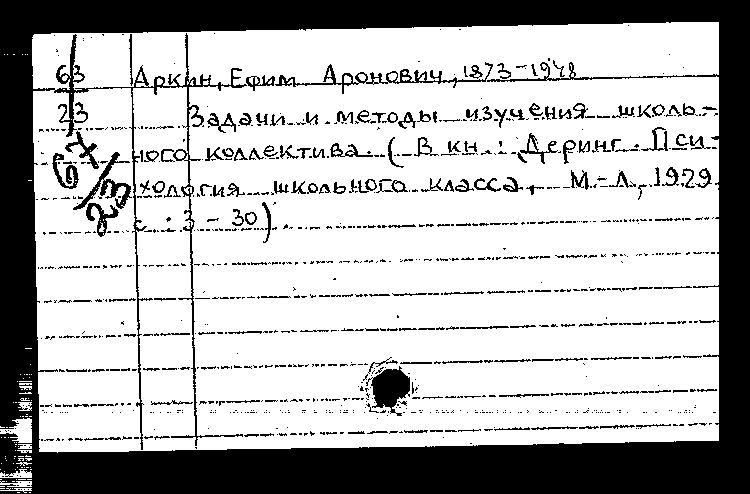 63
23
67/23
Аркин, Ефим Аронович, 1873-1948
Задачи и методы изучения школь-
ного коллектива. (В кн.: Деринг. Пси-
хология школьного класса, М.-Л, 1929
с : 3 - 30).